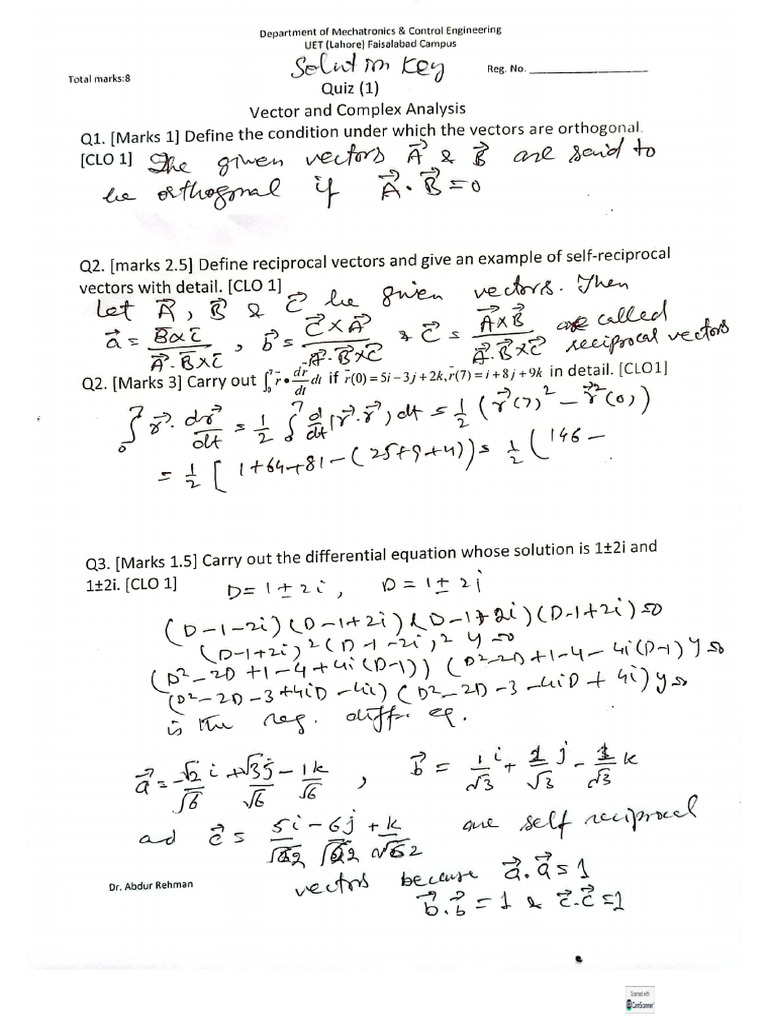 Department of Mechatronics & Control Engineering
UET (Lahore) Faisalabad Campus
Solution Key
Total marks:8
Reg. No. ____________
Quiz (1)
Vector and Complex Analysis
Q1. [Marks 1] Define the condition under which the vectors are orthogonal.
[CLO 1] The given vectors A⃗ & B⃗ are said to
be orthogonal if A⃗ . B⃗ = 0
Q2. [marks 2.5] Define reciprocal vectors and give an example of self-reciprocal
vectors with detail. [CLO 1]
Let A⃗, B⃗ & C⃗ be given vectors. Then
a⃗ = B×C / A⃗.B×C , b⃗ = C⃗×A⃗ / A⃗.B⃗×C⃗ & c⃗ = A⃗×B⃗ / A⃗.B⃗×C⃗ are called
reciprocal vectors
Q2. [Marks 3] Carry out ∫₀⁷ r⃗ • dr⃗/dt dt if r⃗(0)=5i−3j+2k, r⃗(7)=i+8j+9k in detail. [CLO1]
∫₀⁷ r⃗. dr⃗/dt = 1/2 ∫₀⁷ d/dt (r⃗.r⃗) dt = 1/2 (r⃗(7)² − r⃗²(0))
= 1/2 [1+64+81−(25+9+4)) = 1/2 (146 −
Q3. [Marks 1.5] Carry out the differential equation whose solution is 1±2i and
1±2i. [CLO 1]
D = 1 ± 2i, D = 1 ± 2i
(D−1−2i)(D−1+2i)(D−1+2i)(D−1+2i)=0
(D−1+2i)²(D−1−2i)² y=0
(D²−2D+1−4+4i(D−1)) (D²−2D+1−4−4i(D−1) y=0
(D²−2D−3+4iD−4i) (D²−2D−3−4iD+4i) y=0
is the req. diff. eq.
a⃗ = −√2 i/√6 + √3 j/√6 − 1k/√6 , b⃗ = 1/√3 i + 1/√3 j − 1/√3 k
ad c⃗ = 5i/√62 − 6j/√62 + k/√62 are self reciprocal
Dr. Abdur Rehman
vectors because a⃗.a⃗=1
b⃗.b⃗ = 1 & c⃗.c⃗=1
Scanned with
CamScanner